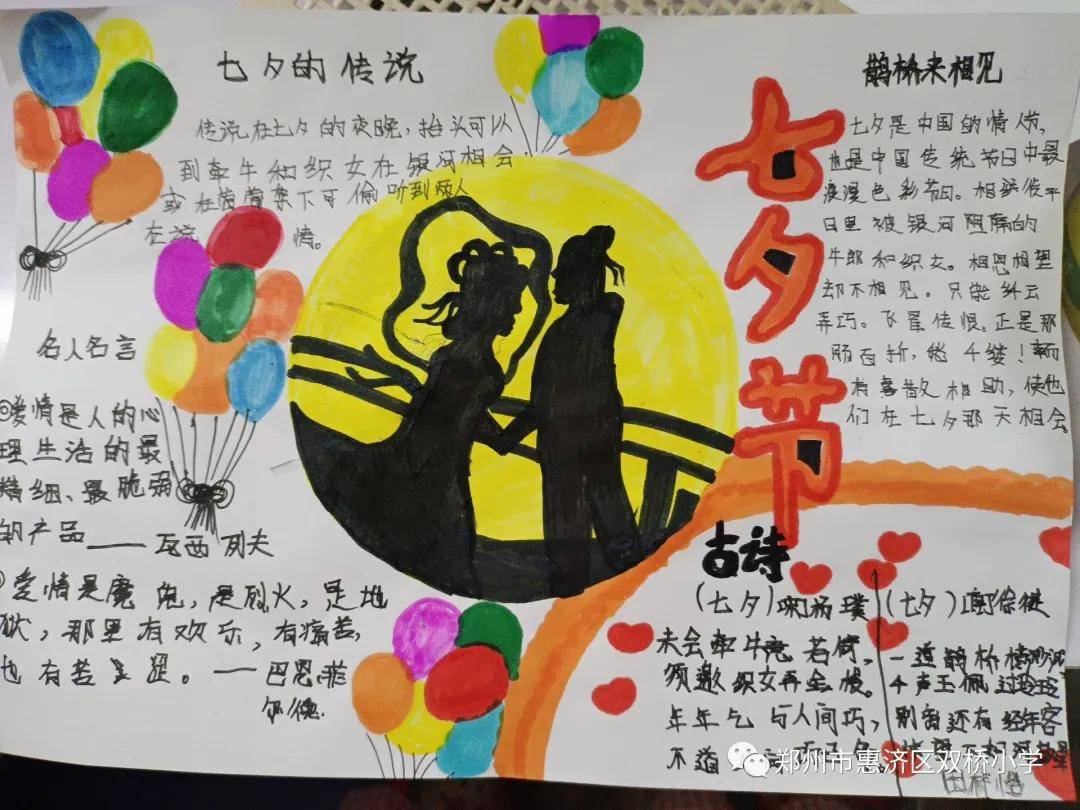 七夕的传说
传说在七夕的夜晚,抬头可以
到牵牛和织女在银河相会
或在 下可偷听到两人
在 情。
名人名言
爱情是人的心
理生活的最
精细、最脆弱
的产品——瓦西列夫
爱情是魔鬼,是烈火,是地
狱,那里有欢乐,有痛苦,
也有苦 。——巴恩菲
尔德.
七夕节
鹊桥来相见
七夕是中国的情人节,
也是中国传统节日中最
浪漫色彩节日。相 平
日里被银河阻隔的
牛郎和织女。相思相望
却不相见。只能纤云
弄巧。飞星传恨。正是那
肠百折,他千缕!
有喜 相助,使他
们在七夕那天相会
古诗
(七夕) 杨璞
未会牵牛意若何,
须邀织女弄金梭。
年年乞与人间巧,
不道
(七夕)
一道鹊桥横
千声玉佩过玲玲
别 还有经年客
郑州市惠济区双桥小学